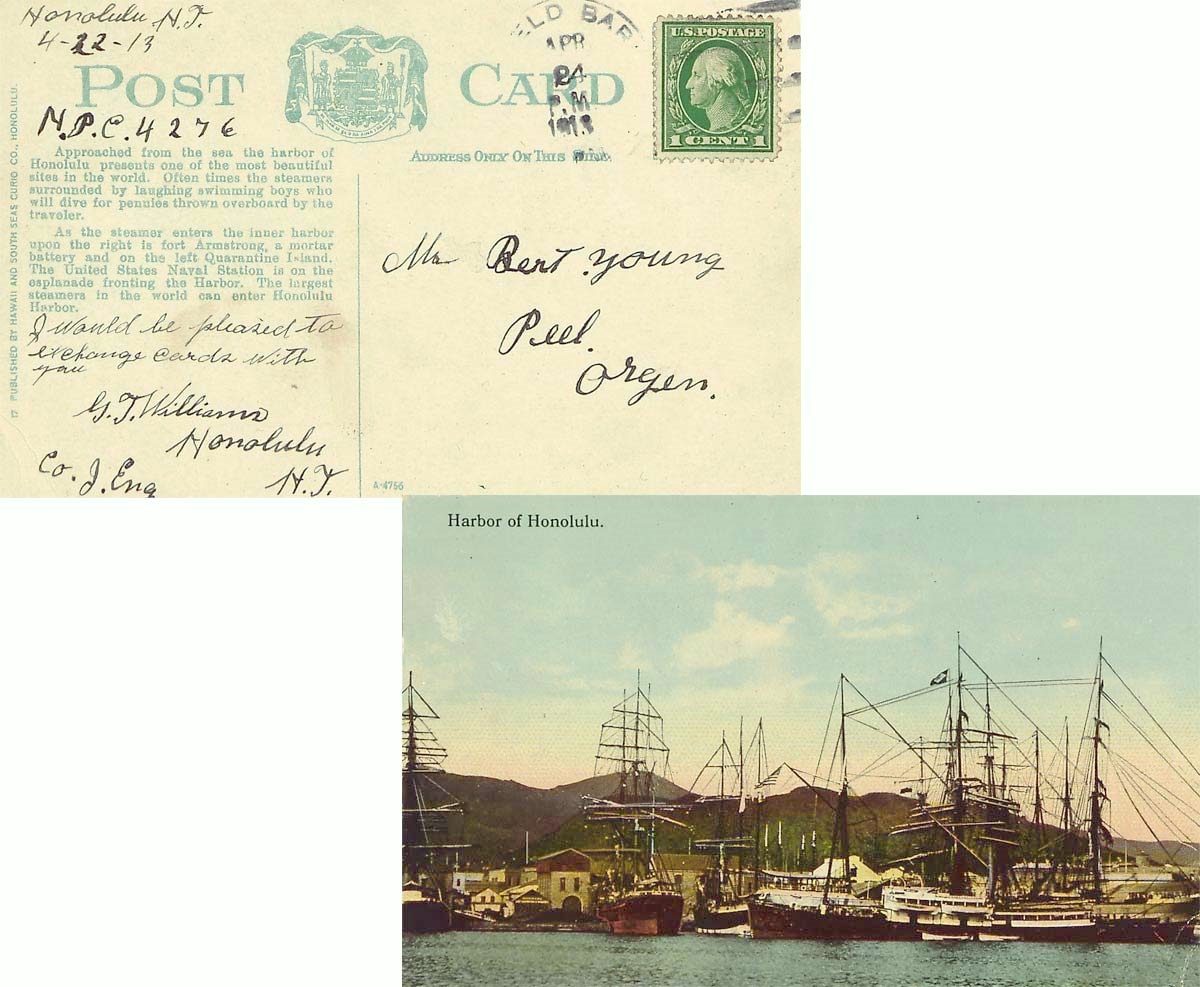 Honolulu H.T.
4-22-13
POST CARD
ELD BAR
APR
24
P.M
1913
U.S. POSTAGE
1 CENT 1
N.P.C. 4276
ADDRESS ONLY ON THIS SIDE.
Approached from the sea the harbor of
Honolulu presents one of the most beautiful
sites in the world. Often times the steamers
surrounded by laughing swimming boys who
will dive for pennies thrown overboard by the
traveler.
As the steamer enters the inner harbor
upon the right is fort Armstrong, a mortar
battery and on the left Quarantine Island.
The United States Naval Station is on the
esplanade fronting the Harbor. The largest
steamers in the world can enter Honolulu
Harbor.
I would be pleased to
exchange cards with
you
G.T. Williams
Honolulu
Co. I. Eng
H.T.
17 PUBLISHED BY HAWAII AND SOUTH SEAS CURIO CO., HONOLULU.
Mr Bert young
Peel.
Orgen.
A-4756
Harbor of Honolulu.